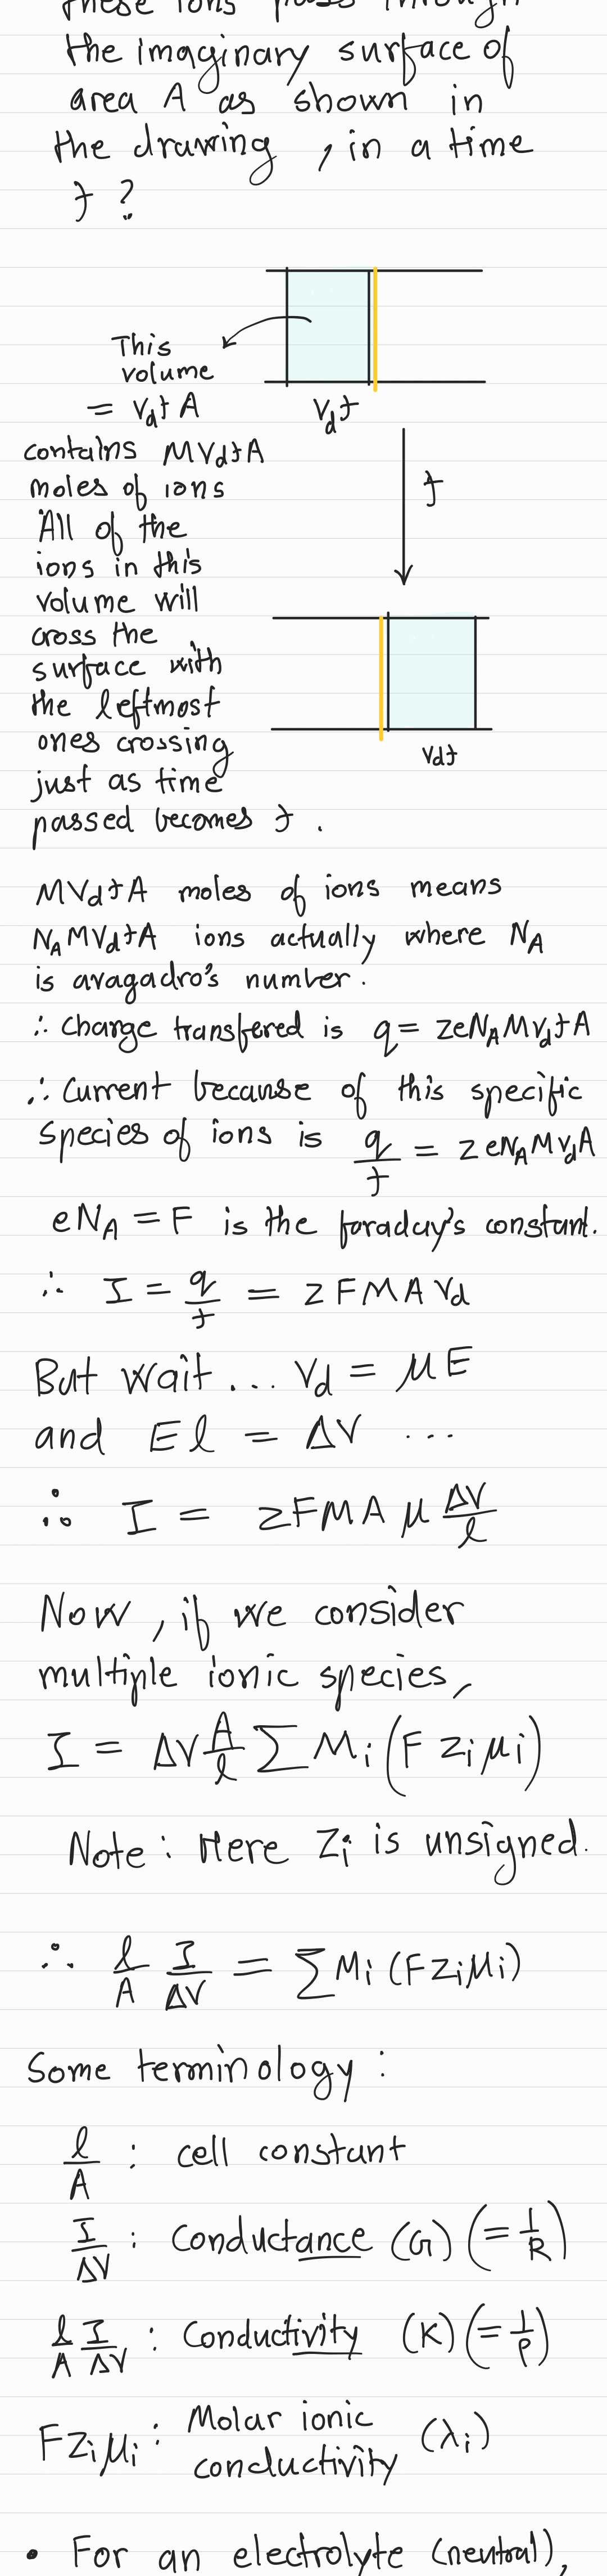 these ions pass through
the imaginary surface of
area A as shown in
the drawing, in a time
t ?
This
volume
= Vdt A
Vdt
contains MVdtA
moles of ions
t
All of the
ions in this
volume will
cross the
surface with
the leftmost
ones crossing
Vdt
just as time
passed becomes t .
MVdtA moles of ions means
NAMVdtA ions actually where NA
is avagadro's number.
∴ Charge transfered is q = zeNAMVdtA
∴ Current because of this specific
species of ions is q/t = zeNAMVdA
eNA = F is the faraday's constant.
∴ I = q/t = zFMAVd
But wait... Vd = μE
and El = ΔV ...
∴ I = zFMA μ ΔV/l
Now, if we consider
multiple ionic species,
I = ΔV A/l ∑ Mi (F zi μi)
Note : Here Zi is unsigned.
∴ l/A I/ΔV = ∑ Mi (F zi μi)
Some terminology :
l/A : cell constant
I/ΔV : Conductance (G) (= 1/R)
l/A I/ΔV : Conductivity (K) (= 1/ρ)
F zi μi : Molar ionic
conductivity (λi)
• For an electrolyte (neutral),